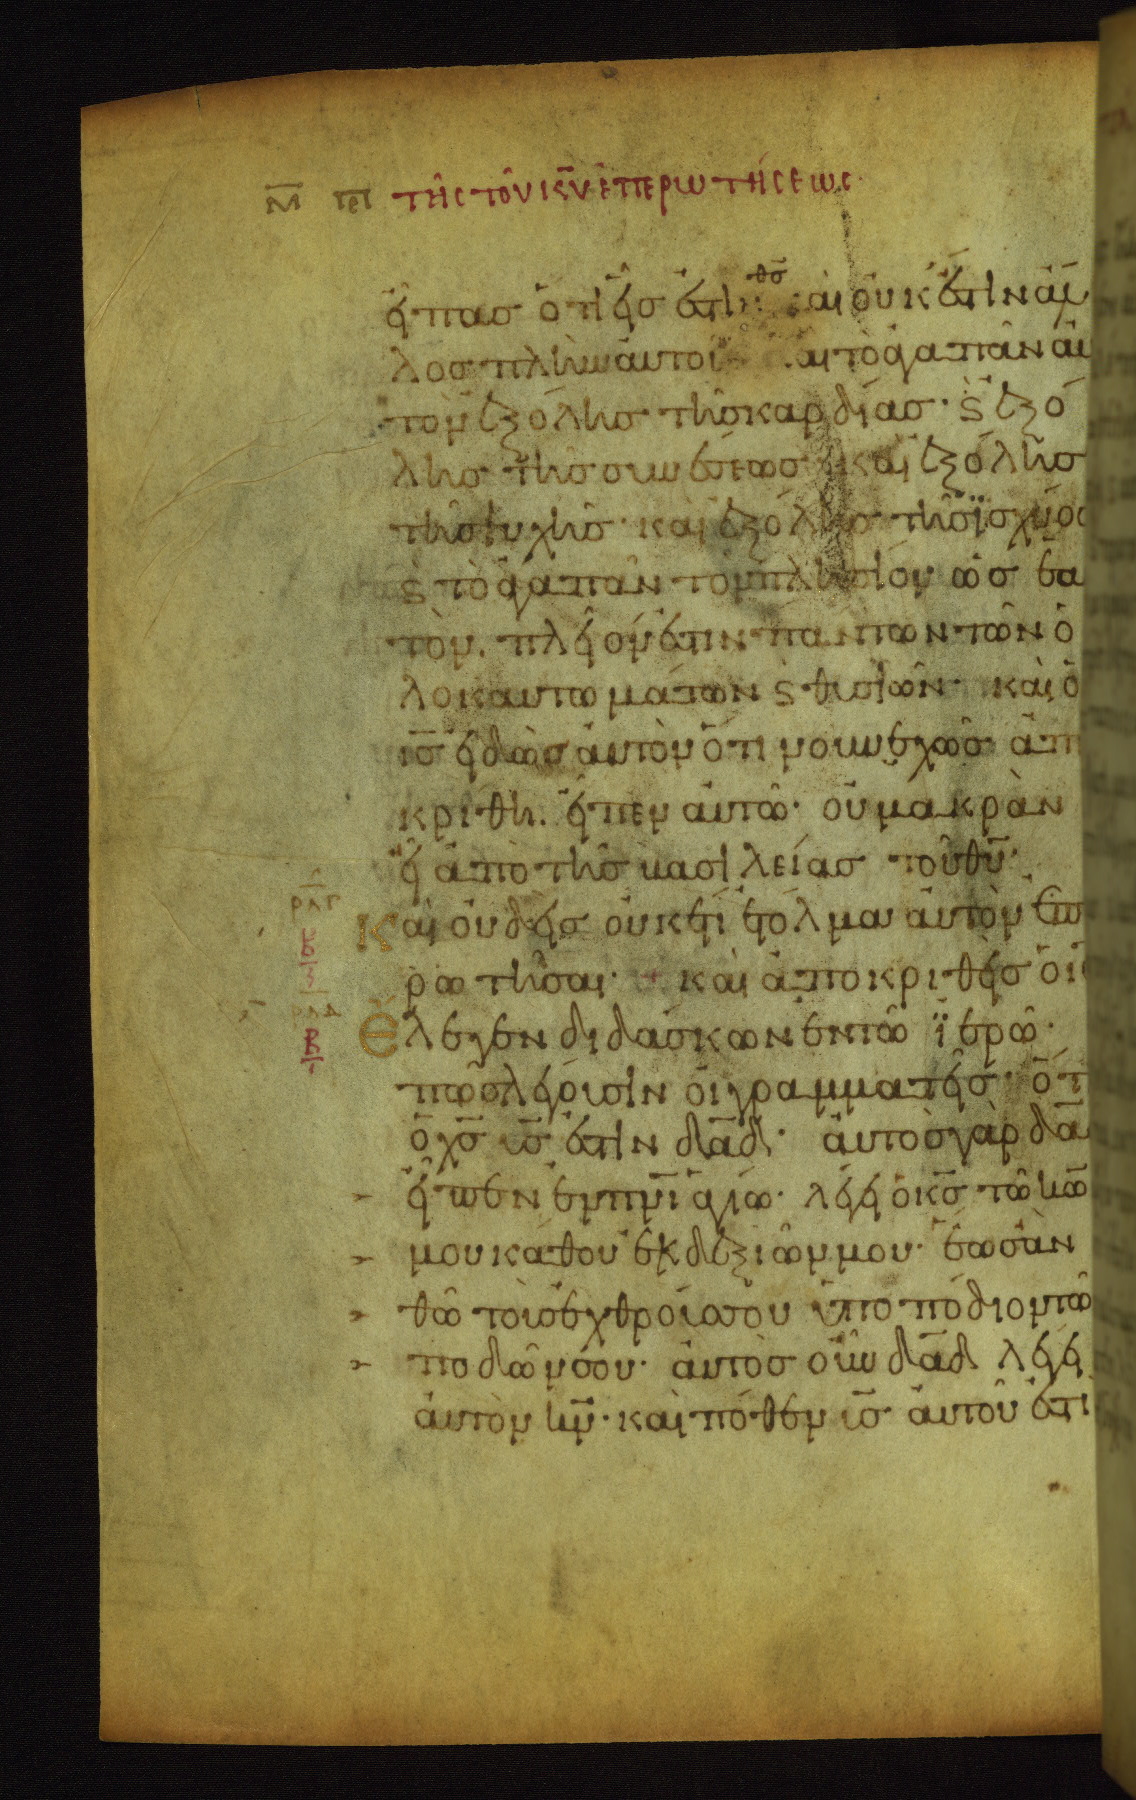 μ̅ πε τῆς τοῦ κ̅υ̅ ἐπερωτήσεως
εἶπας ὅτι εἷς ἐστιν θ̅ς̅ καὶ οὐκ ἔστιν ἄλ
λος πλὴν αὐτοῦ καὶ τὸ ἀγαπᾶν αὐ
τὸν ἐξ ὅλης τῆς καρδίας· ϗ ἐξ ὅ
λης τῆς συνέσεως· καὶ ἐξ ὅλης
τῆς ψυχῆς· καὶ ἐξ ὅλης τῆς ϊσχύος
ϗ τὸ ἀγαπᾶν τὸν πλησίον ὡς ἑα
τὸν. πλεῖον ἐστιν πάντων τῶν ὁ
λοκαυτωμάτων ϗ θυσιῶν· καὶ ὁ
ι̅ς̅ εἰδὼς αὐτὸν ὅτι νουνεχῶς ἀπε
κρίθη. εἶπεν αὐτῶ· οὐ μακρὰν
εἶ ἀπὸ τῆς βασιλείας τοῦ θ̅υ̅·
ρλγ
Καὶ οὐδεὶς οὐκέτι ἐτόλμα αὐτὸν ἐπε
β
ρωτῆσαι· + καὶ ἀποκριθεὶς ὁ ι̅ς̅
ρλδ
Ἔλεγεν διδάσκων ἐν τῶ ϊερῶ·
β
πῶς λέγουσιν οἱ γραμματεῖς· ὅτι
ὁ χ̅ς̅ υ̅ς̅ ἐστιν δα̅δ̅· αὐτὸς γὰρ δα̅δ̅
εἶπεν ἐν π̅ν̅ι̅ ἁγίω· λέγει ὁ κ̅ς̅ τῶ κ̅ω̅
μου κάθου ἐκ δεξιῶν μου· ἕως ἂν
θῶ τοὺς ἐχθρούς σου ὑποπόδιον τῶν
ποδῶν σου· αὐτὸς οὖν δα̅δ̅ λέγει
αὐτὸν κ̅ν̅· καὶ πόθεν υ̅ς̅ αὐτοῦ ἐστι